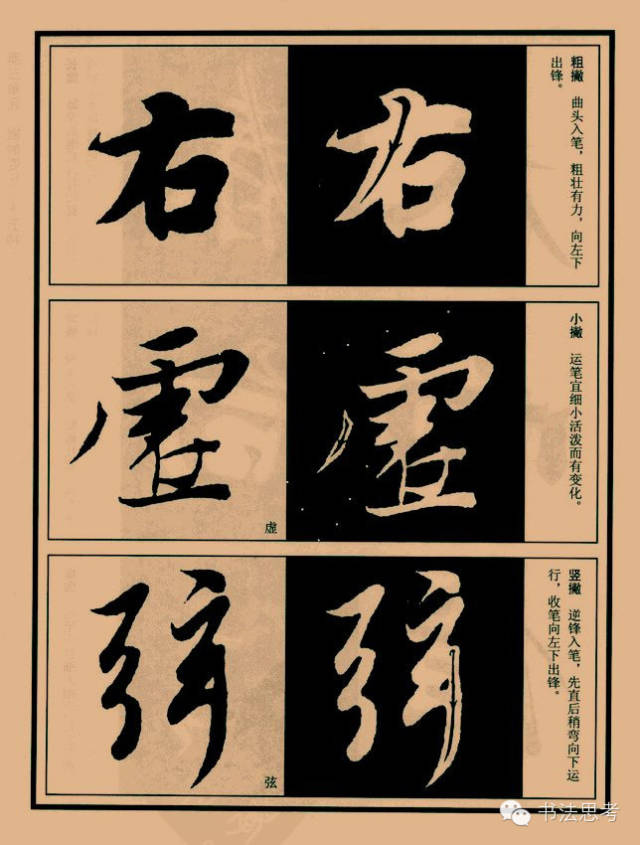 粗撇 曲头入笔，粗壮有力，向左下
出锋。
右
右
小撇 运笔宜细小活泼而有变化。
虚
虚
虚
竖撇 逆锋入笔，先直后稍弯向下运
行，收笔向左下出锋。
弦
弦
弦
书法思考